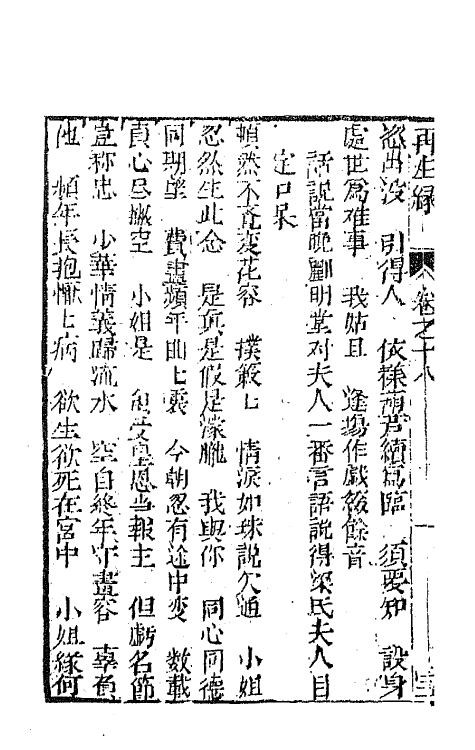 再生緣 卷之十八
出沒 引得人 依樣 續寫臨 須要知 設身
處世爲难事 我姑且 逢塲作戲綴餘音
話說當晚酈明堂对夫人一番言語說得梁氏夫人目
定口呆
頓然不覺変花容 撲簌匕 情淚如珠說欠通 小姐
忽然生此念 是真是假是濛朧 我與你 同心同德
同期望 費盡頻年曲匕衷 今朝忽有途中变 数載
貞心尽撇空 小姐是 皇恩当報主 但虧名節
豈称忠 少華情義歸流水 空自終年守畫容 辜負
他 頻年長抱懨匕病 欲生欲死在宮中 小姐緣何